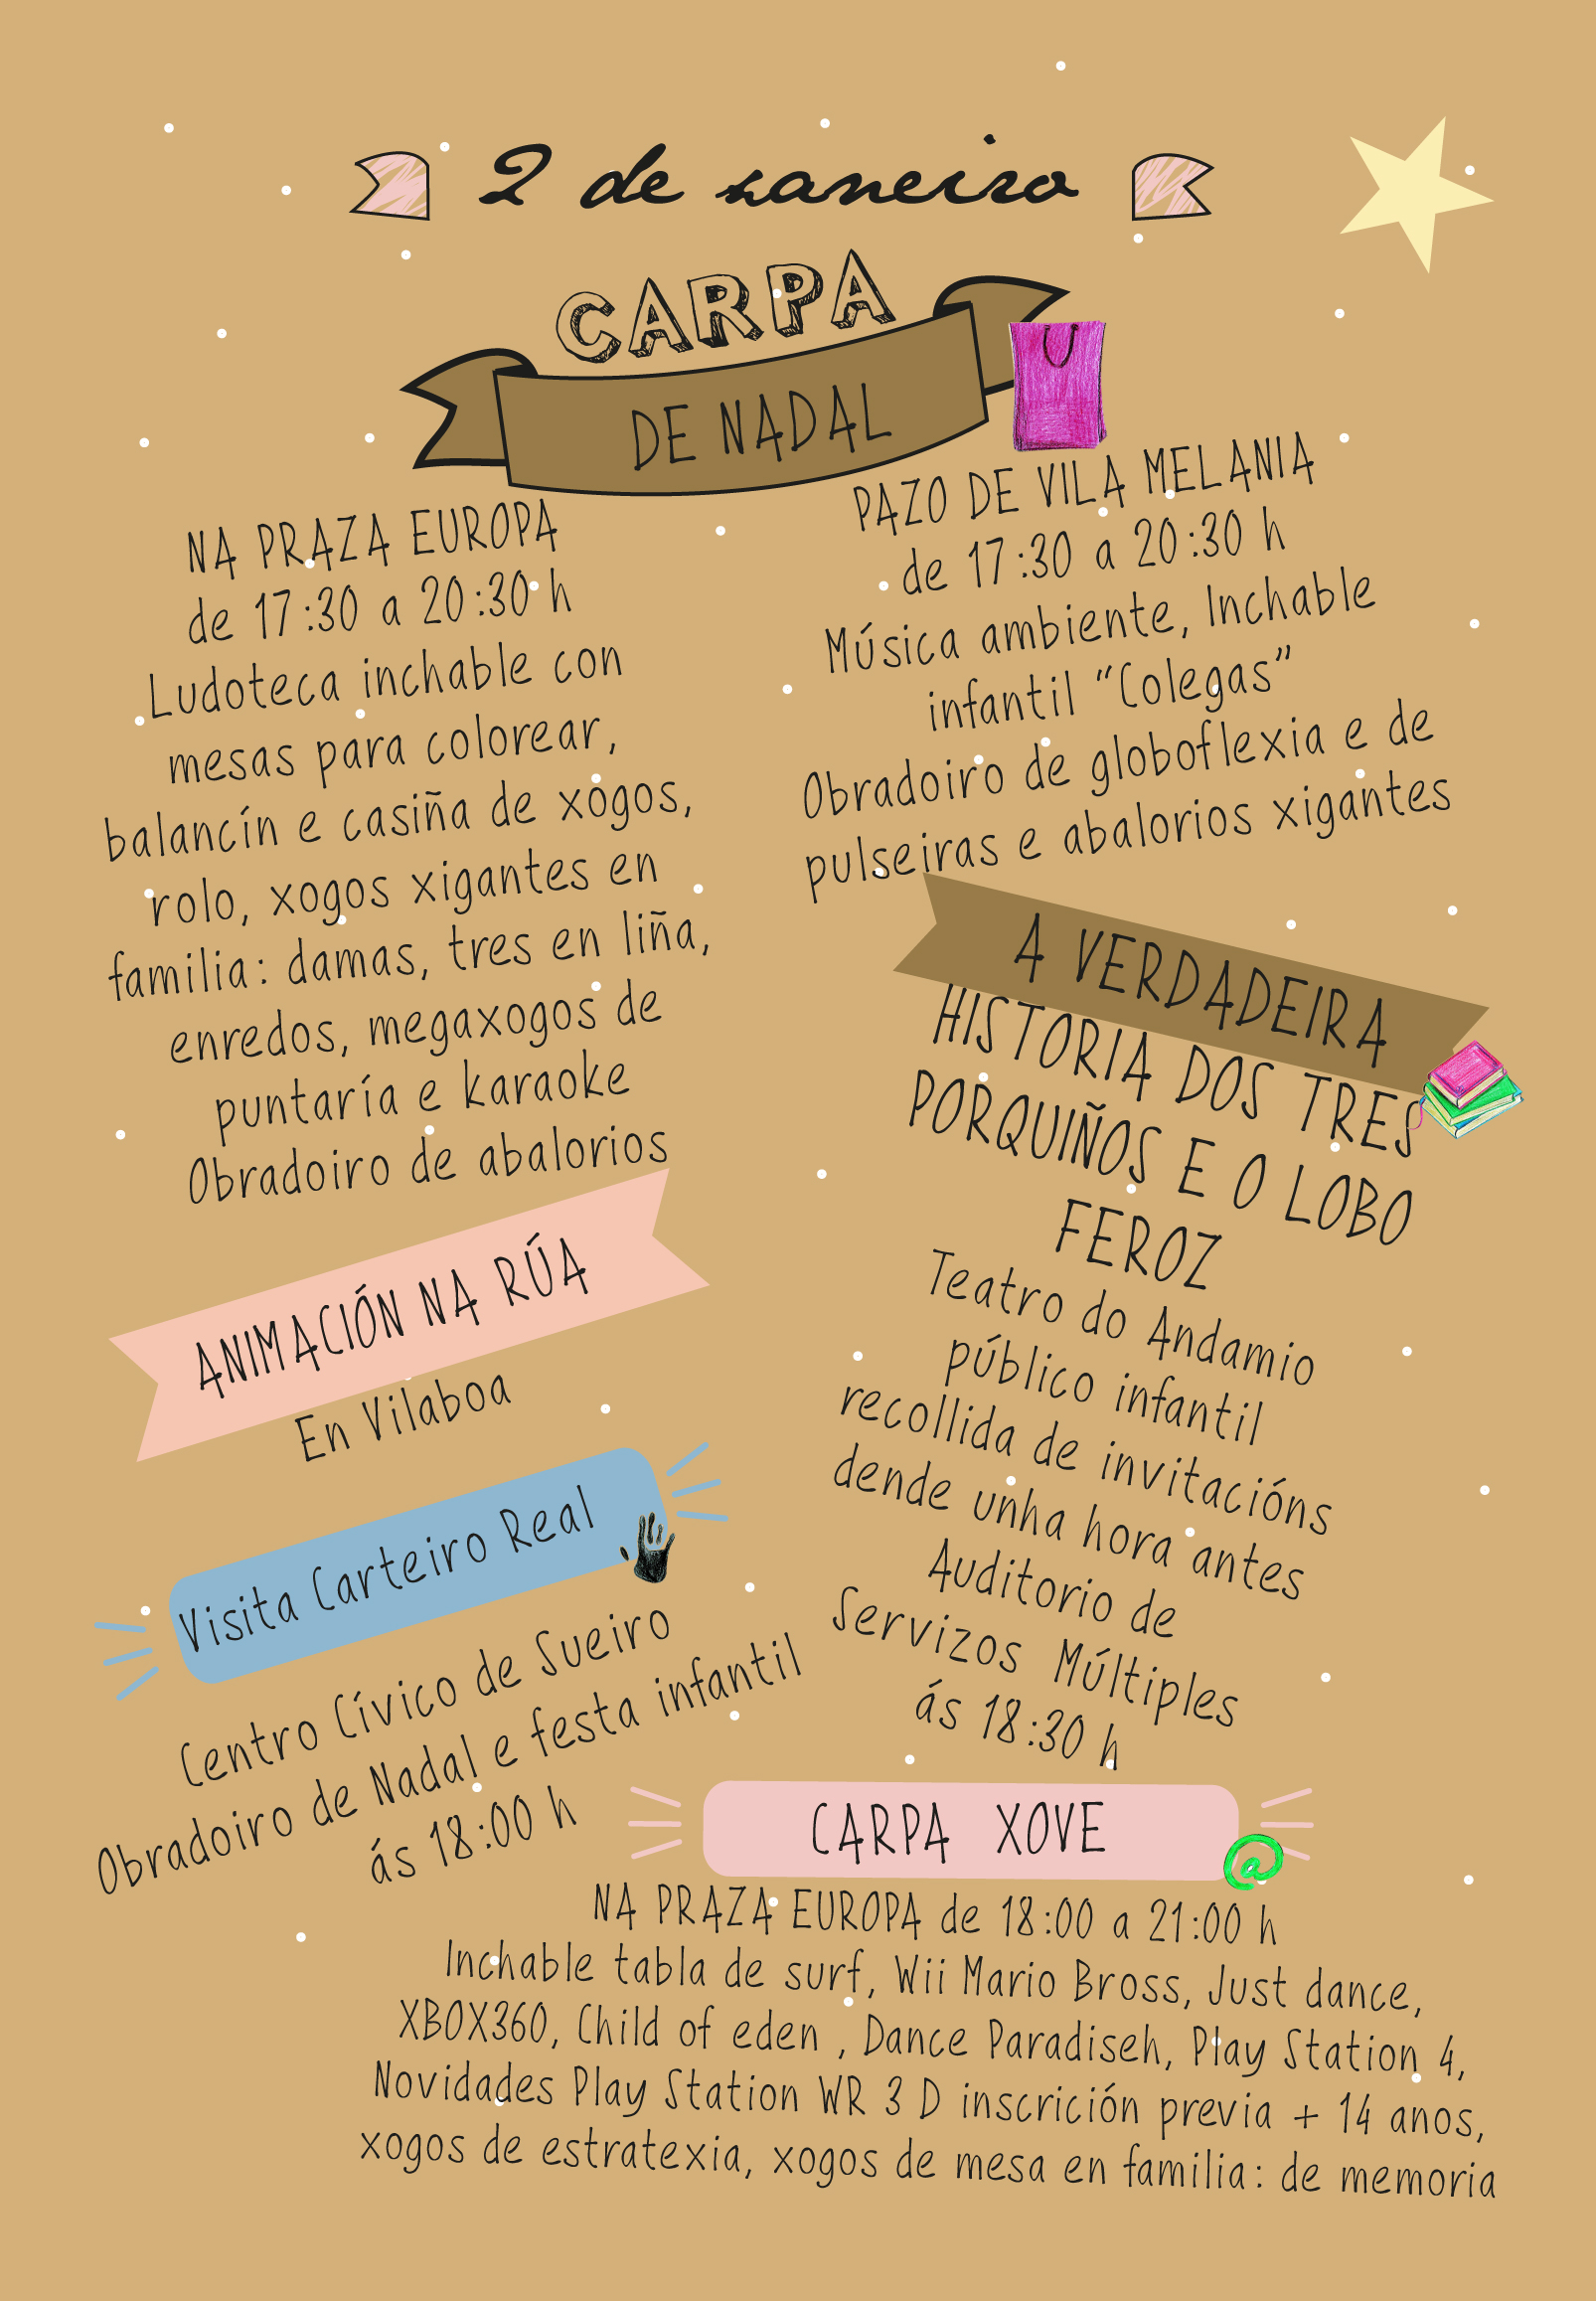 2 de xaneiro
CARPA
DE NADAL
NA PRAZA EUROPA
de 17:30 a 20:30 h
Ludoteca inchable con
mesas para colorear,
balancín e casiña de xogos,
rolo, xogos xigantes en
familia: damas, tres en liña,
enredos, megaxogos de
puntaría e karaoke
Obradoiro de abalorios
ANIMACIÓN NA RÚA
En Vilaboa
Visita Carteiro Real
Centro Cívico de Sueiro
Obradoiro de Nadal e festa infantil
ás 18:00 h
PAZO DE VILA MELANIA
de 17:30 a 20:30 h
Música ambiente, Inchable
infantil "Colegas"
Obradoiro de globoflexia e de
pulseiras e abalorios xigantes
A VERDADEIRA
HISTORIA DOS TRES
PORQUIÑOS E O LOBO
FEROZ
Teatro do Andamio
público infantil
recollida de invitacións
dende unha hora antes
Auditorio de
Servizos Múltiples
ás 18:30 h
CARPA XOVE
@
NA PRAZA EUROPA de 18:00 a 21:00 h
Inchable tabla de surf, Wii Mario Bross, Just dance,
XBOX360, Child of eden , Dance Paradiseh, Play Station 4,
Novidades Play Station WR 3 D inscrición previa + 14 anos,
xogos de estratexia, xogos de mesa en familia: de memoria